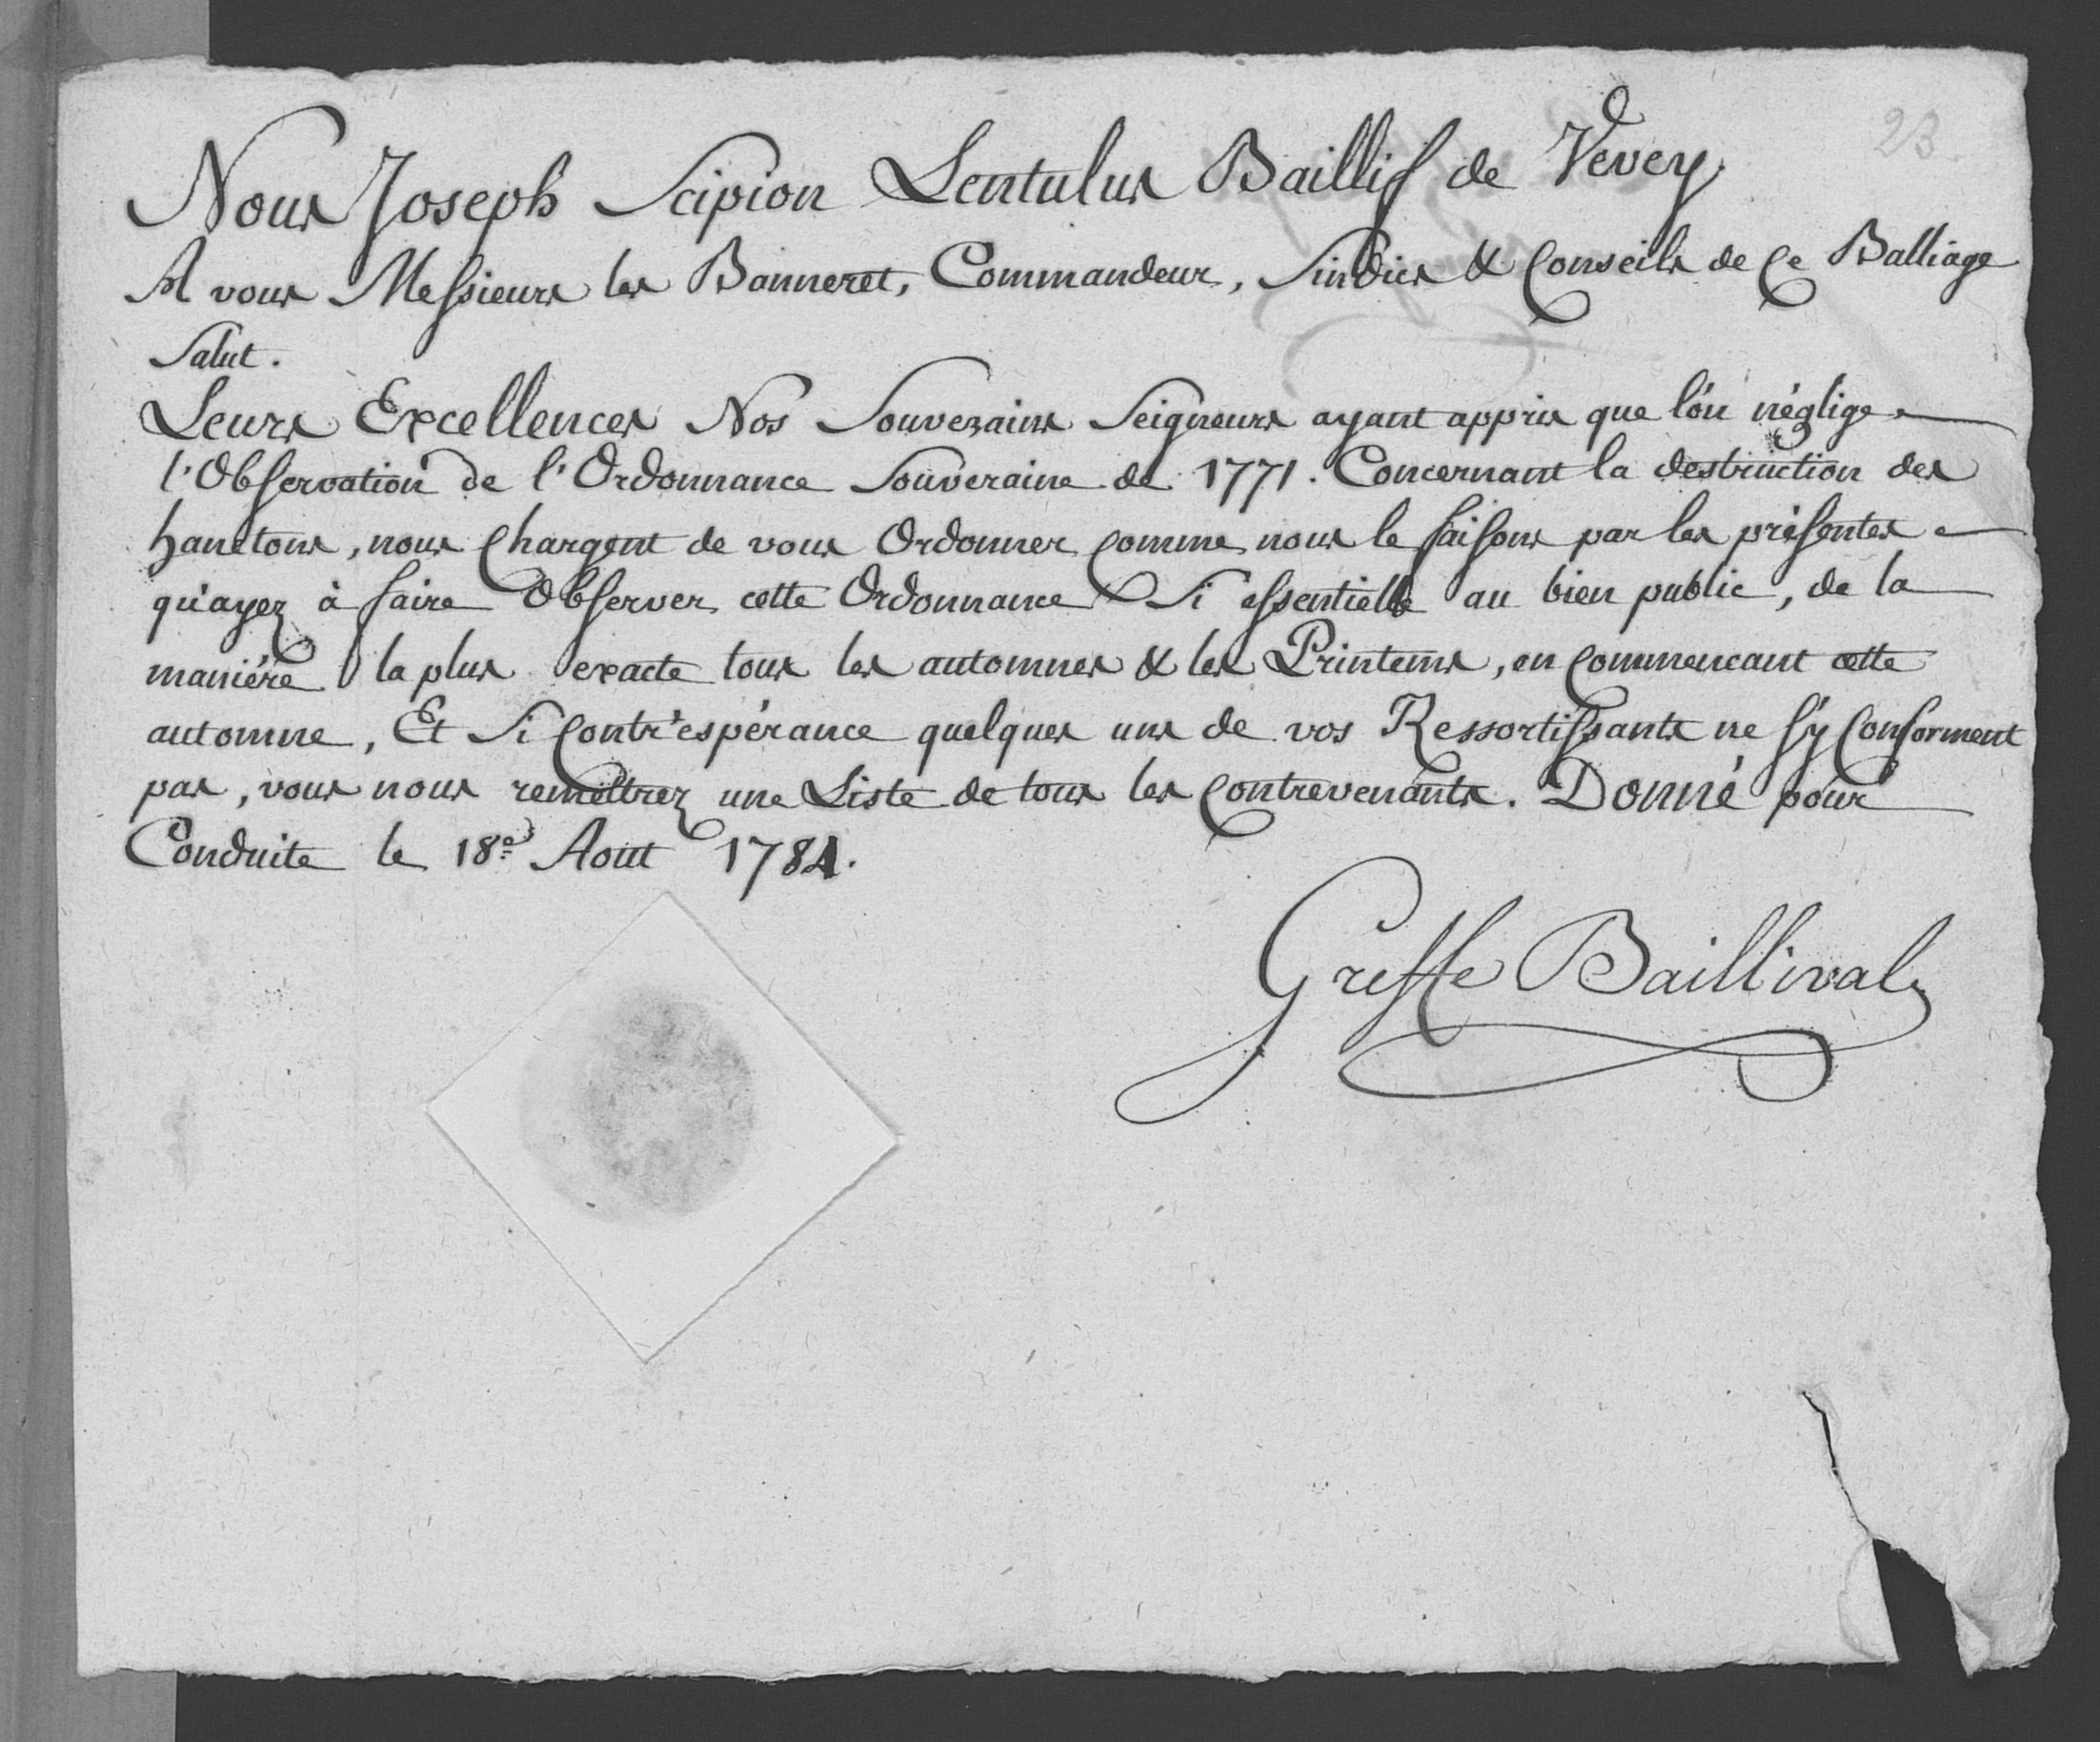 23
Nous Joseph Scipion Lentulus Baillif de Vevey
A vous Messieurs les Banneret, Commandeur, Sindics & Conseils de Ce Balliage
Salut.
Leurs Excellences Nos Souverains Seigneurs ayant appris que l'ou néglige
l'Observation de l'Ordonnance Souveraine de 1771. Concernant la destruction des
hanetons, nous Chargent de vous Ordonner comme nous le faisons par les présentes
qu'ayez à faire Observer cette Ordonnance Si essentielle au bien public, de la
maniére la plus exacte tous les automnes & les Printems, en Commencant cette
automne, Et Si Contr'espérance quelques uns de vos Ressortissants ne s'y Conforment
pas, vous nous remettrez une Liste de tous les Contrevenants. Donné pour
Conduite le 18e Aout 1784.
Greffe Baillival